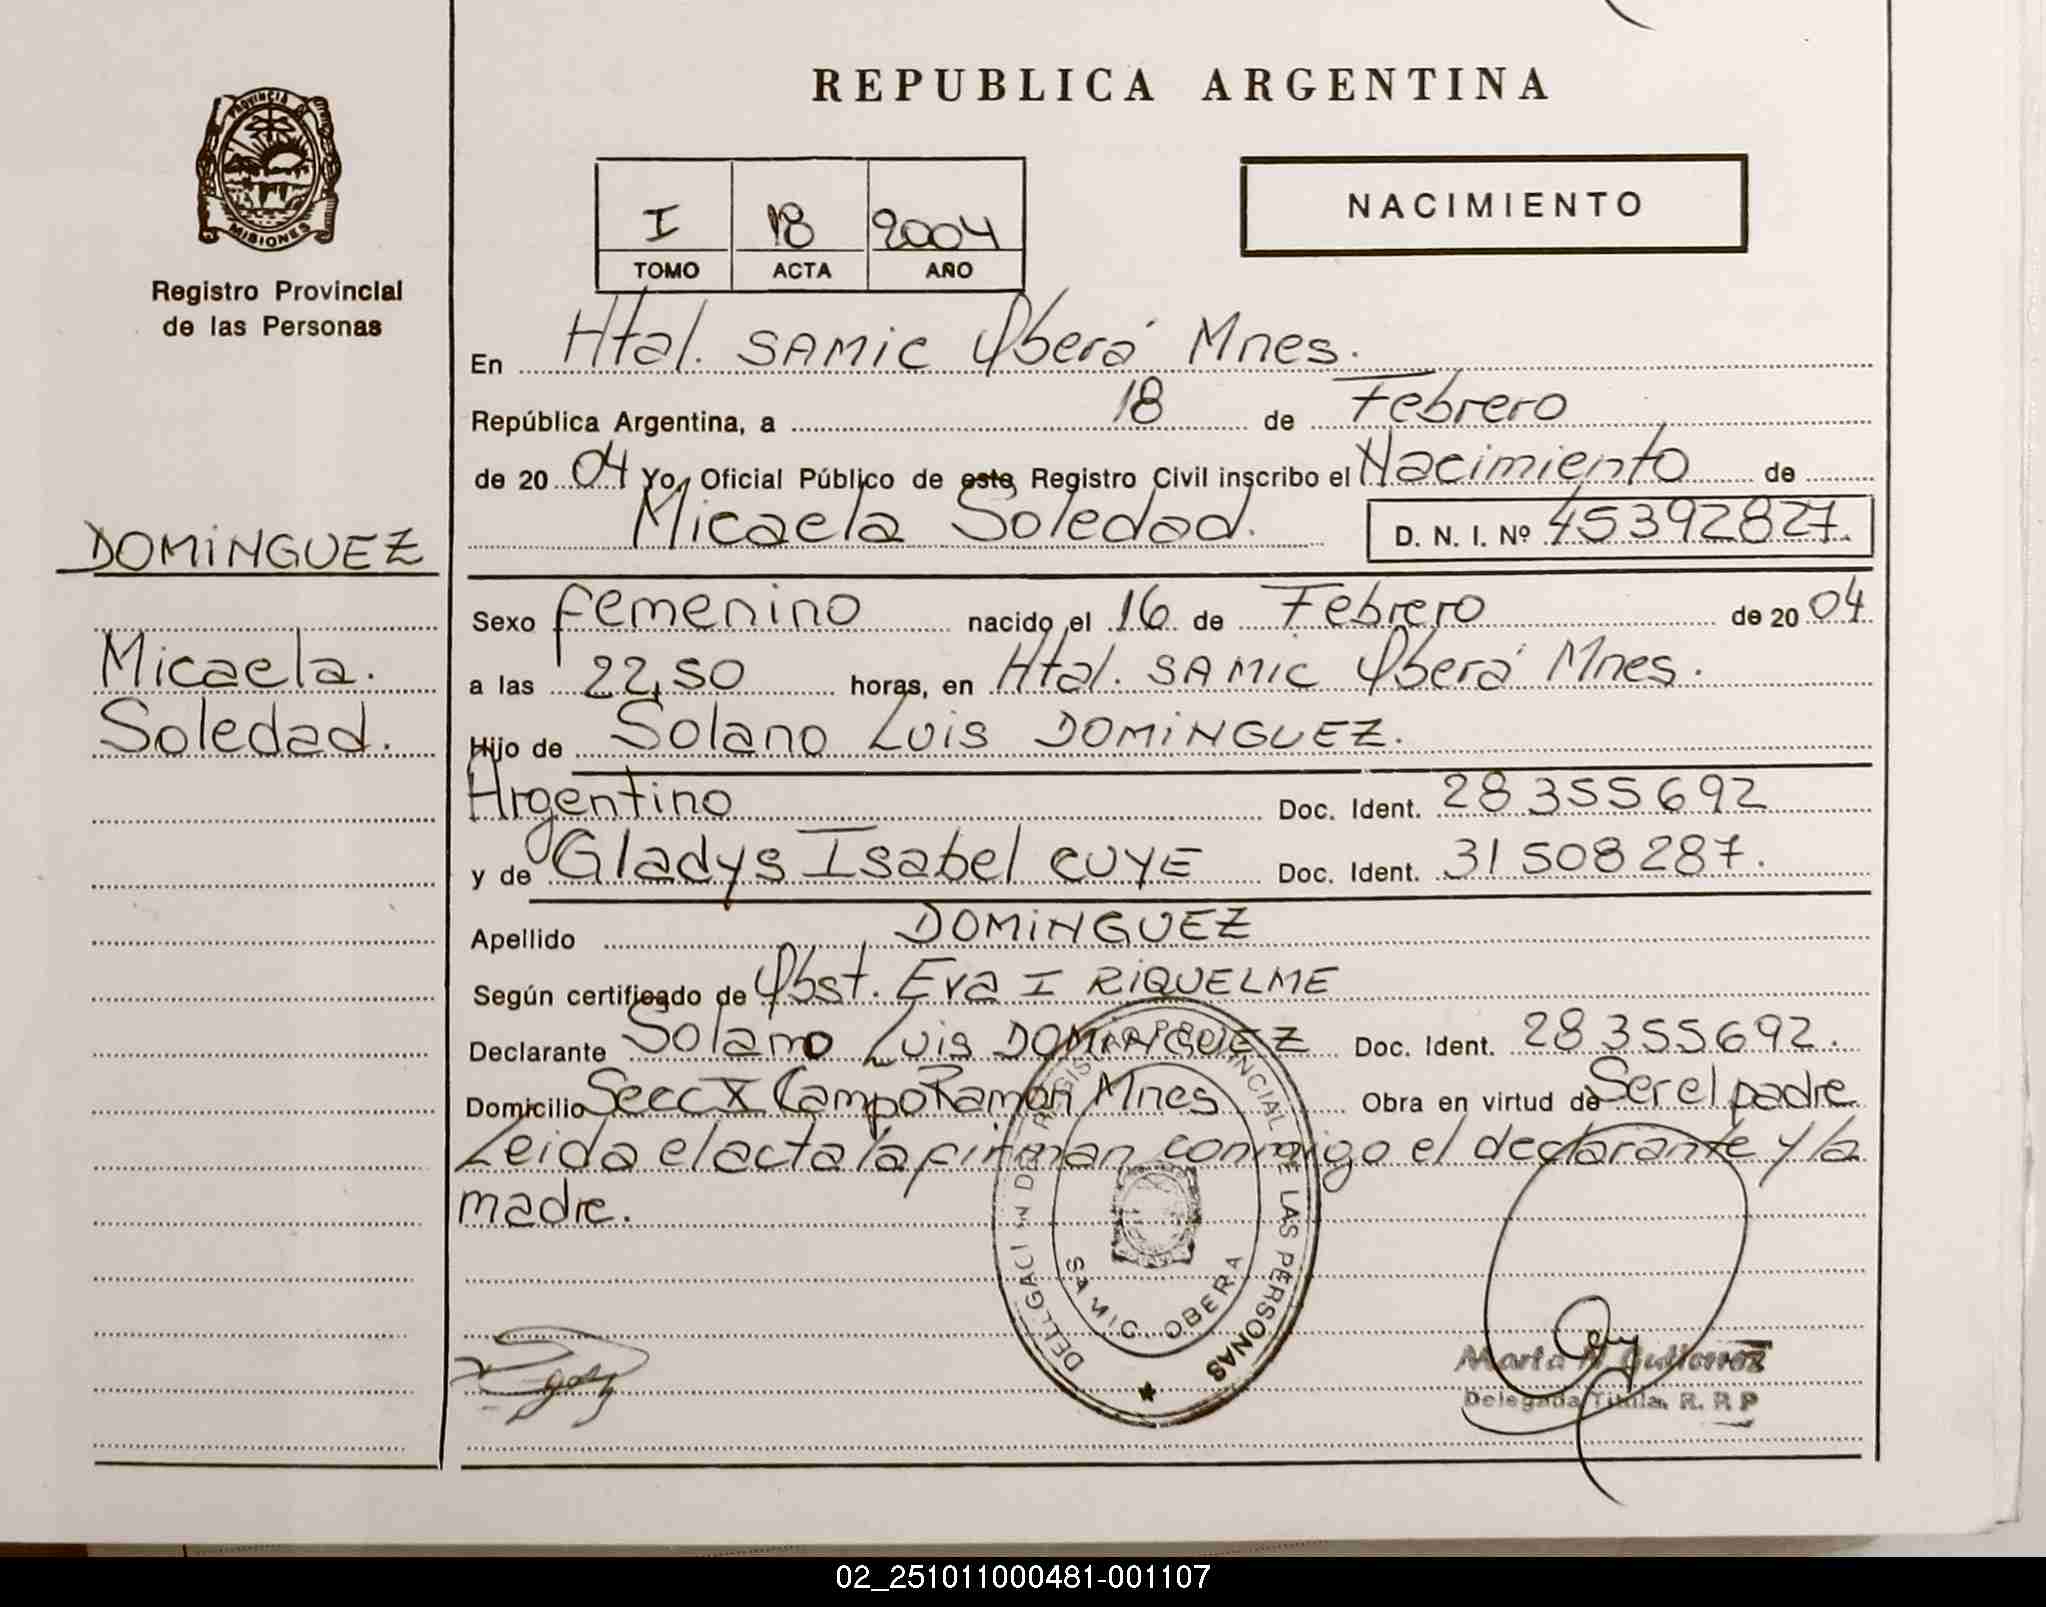 REPUBLICA ARGENTINA
PROVINCIA DE MISIONES
Registro Provincial
de las Personas
I 18 2004
TOMO ACTA AÑO
NACIMIENTO
En Htal. SAMIC Oberá Mnes.
República Argentina, a 18 de Febrero
de 20 04 Yo, Oficial Público de este Registro Civil inscribo el Nacimiento de
Micaela Soledad. D. N. I. Nº 45392827.
DOMINGUEZ
Micaela.
Soledad.
Sexo femenino nacido el 16 de Febrero de 20 04
a las 22,50 horas, en Htal. SAMIC Oberá Mnes.
Hijo de Solano Luis DOMINGUEZ.
Argentino Doc. Ident. 28 355 692
y de Gladys Isabel CUYE Doc. Ident. 31 508 287.
Apellido DOMINGUEZ
Según certificado de Obst. Eva I RIQUELME
Declarante Solano Luis DOMINGUEZ Doc. Ident. 28 355 692.
Domicilio Secc X Campo Ramon Mnes Obra en virtud de Ser el padre
Leida el acta la firman conmigo el declarante y la
madre.
REGISTRO PROVINCIAL DE LAS PERSONAS
SAMIC OBERA
Marta Gutierrez
Delegada Titula. R. P. P
02_251011000481-001107